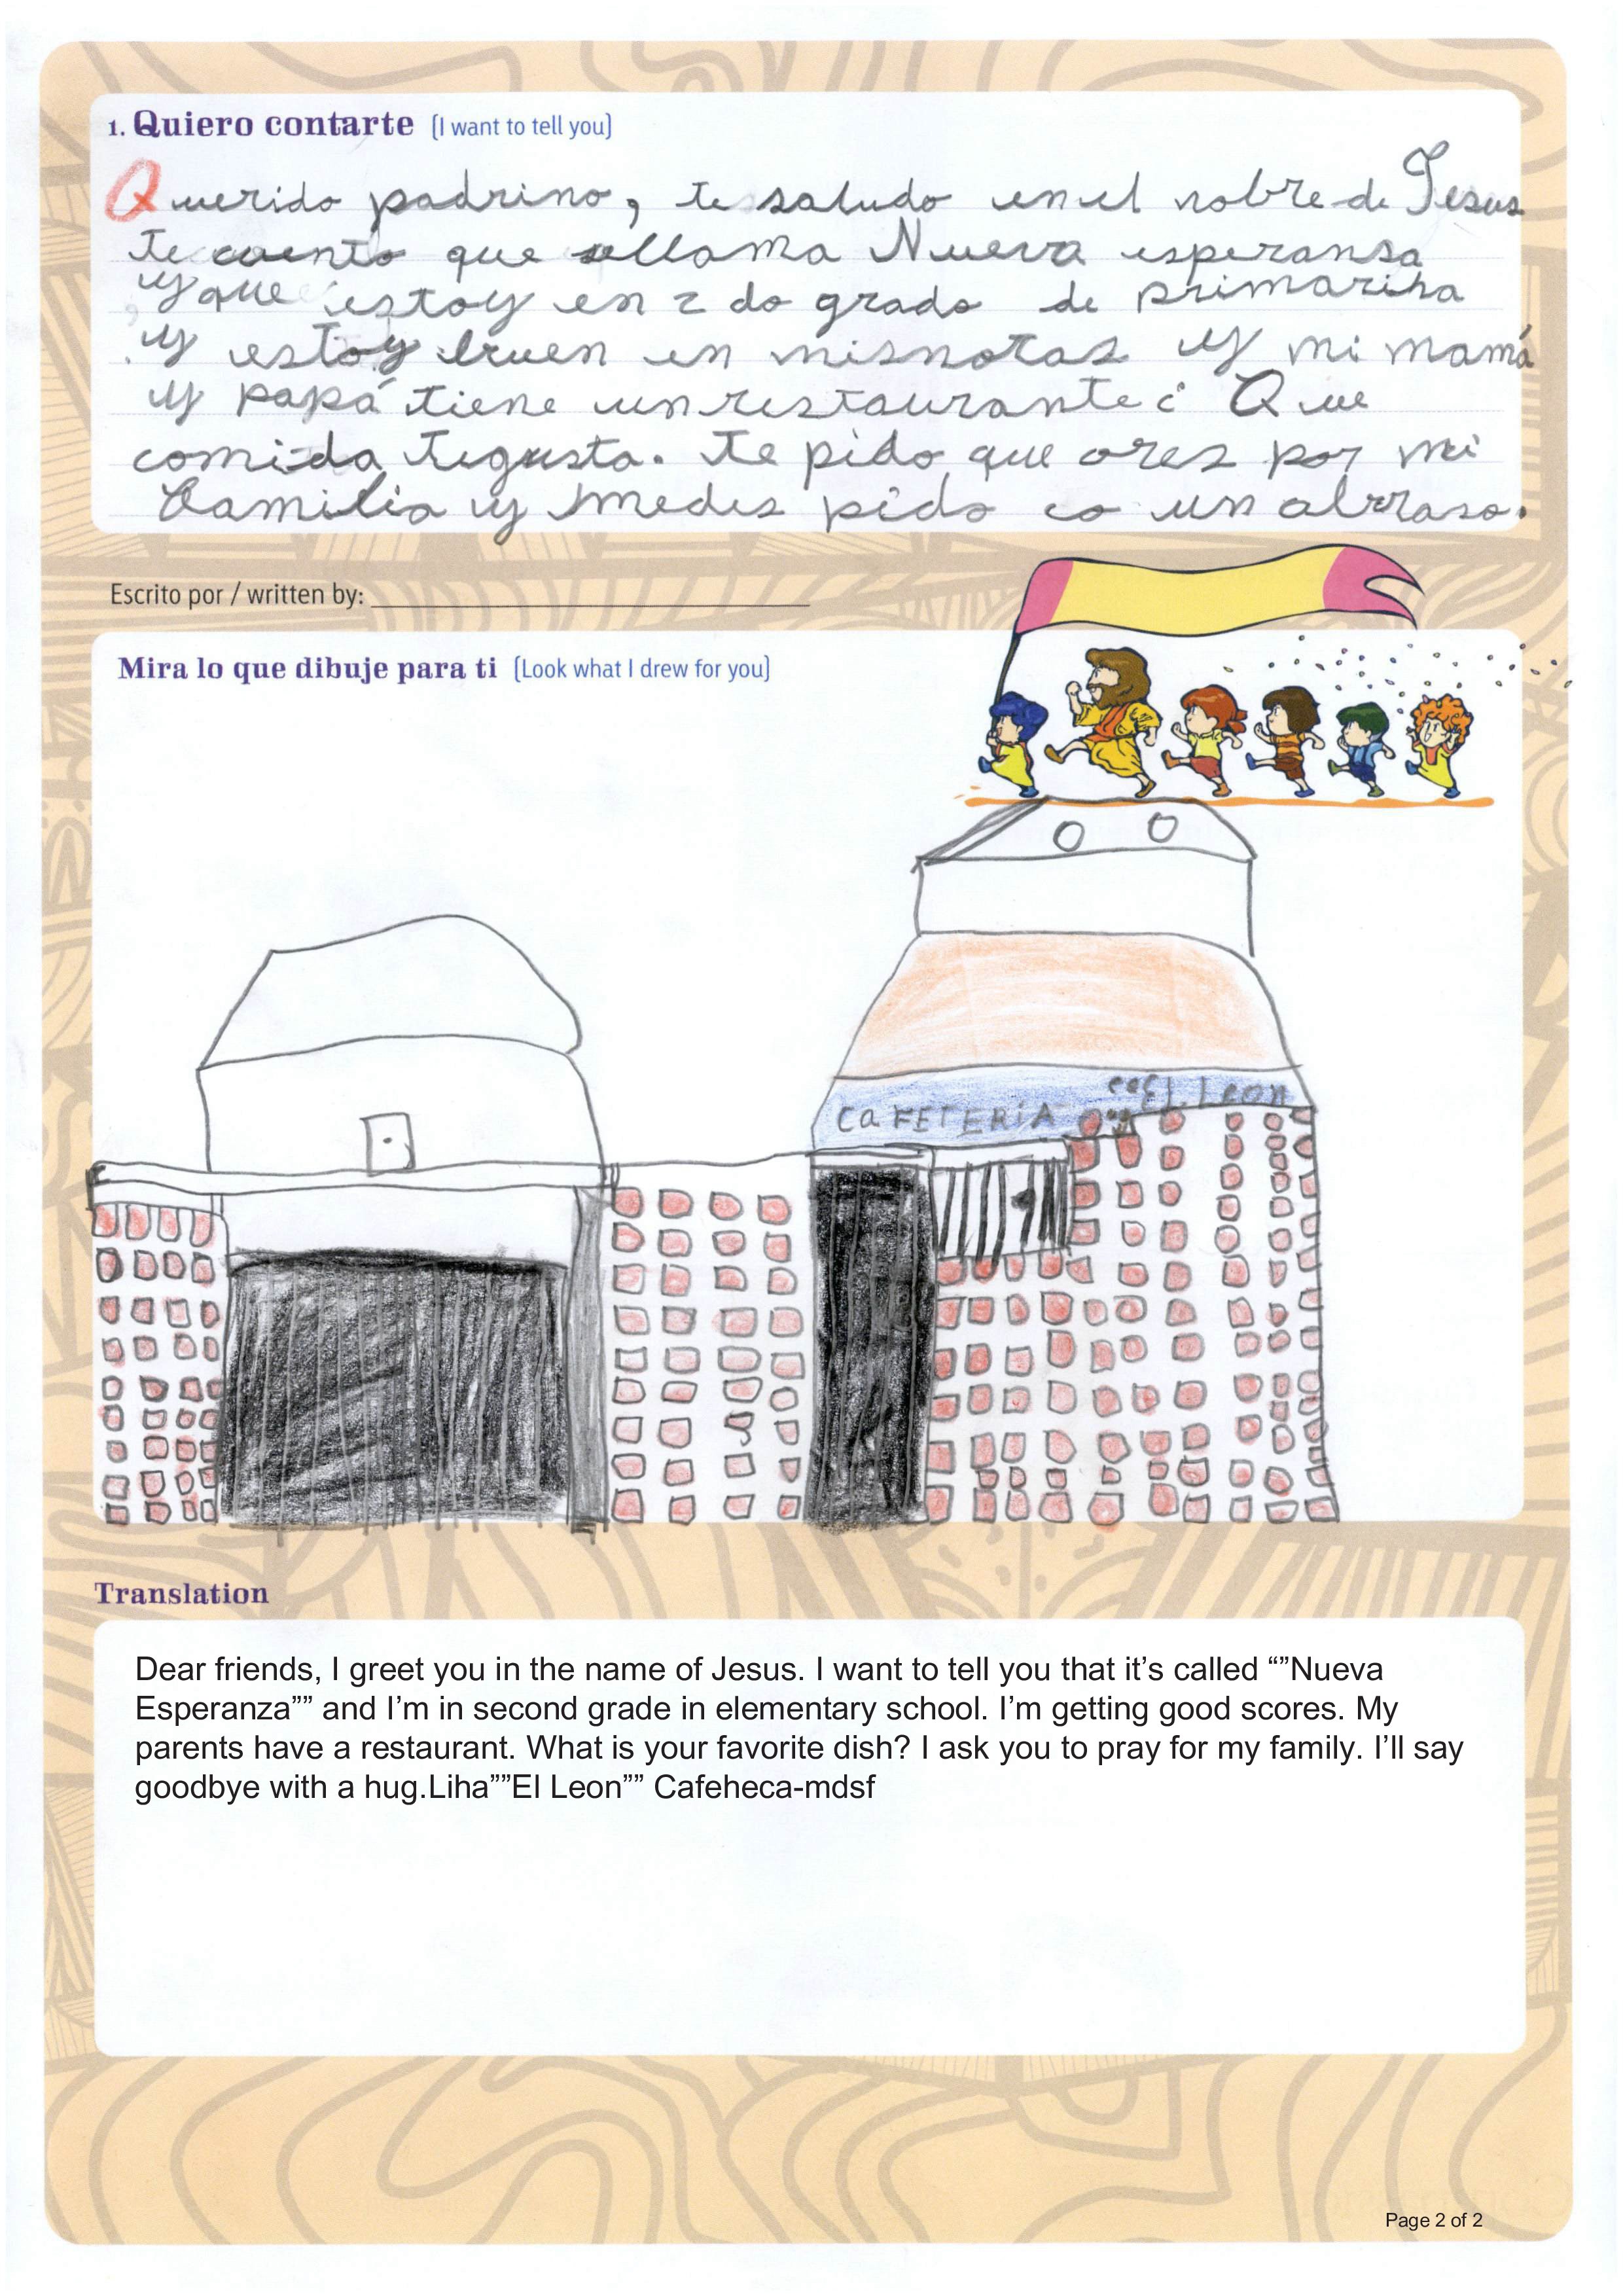 1. Quiero contarte (I want to tell you)
Querido padrino, te saludo en el nobre de Jesus
te cuento que sellama Nueva esperansa
y que estoy en 2 do grado de primariha
y estoy bruen en misnotas y mi mamá
y papá tiene unrestaurante ¿ Que
comida tegusta. te pido que ores por mi
familia y medes pido co un abrraso.
Escrito por / written by:
Mira lo que dibuje para ti (Look what I drew for you)
CaFETERIA El. Leon
Translation
Dear friends, I greet you in the name of Jesus. I want to tell you that it’s called “”Nueva
Esperanza”” and I’m in second grade in elementary school. I’m getting good scores. My
parents have a restaurant. What is your favorite dish? I ask you to pray for my family. I’ll say
goodbye with a hug.Liha””El Leon”” Cafeheca-mdsf
Page 2 of 2